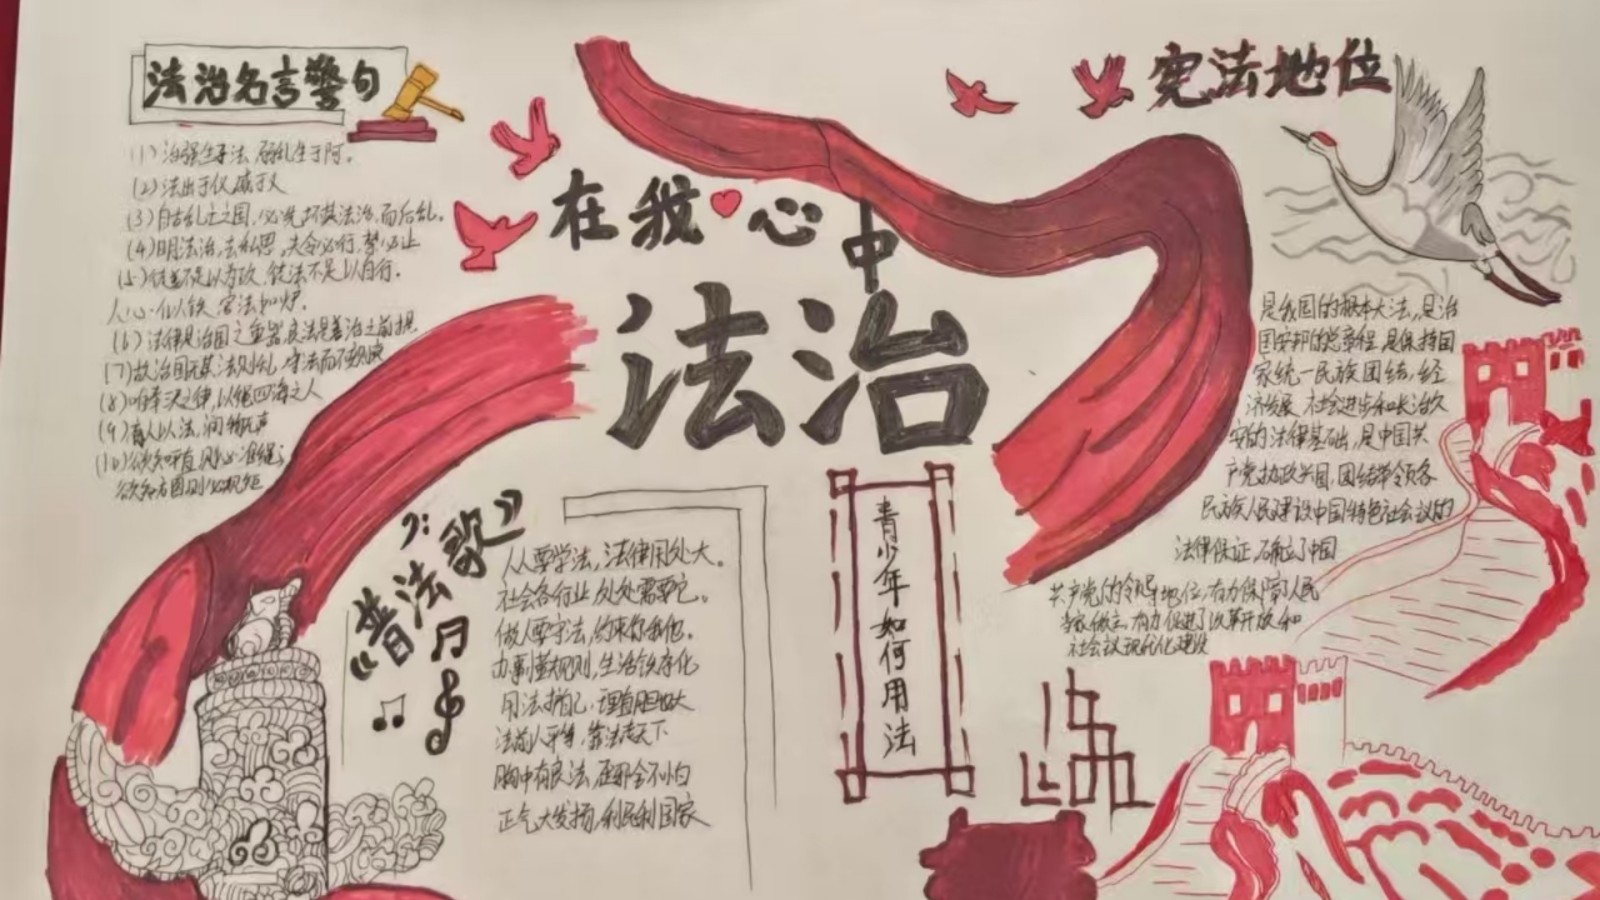 法治名言警句
(1)治强生于法,弱乱生于阿。
(2)法出于仪
(3)自古乱亡之国,必先坏其法治,而后乱。
(4)明法治,去私恩,夫令必行,禁必止
(5)徒善不足以为政,徒法不足以自行。
人心似铁,官法如炉.
(6)法律是治国之重器,良法是善治之前提
(7)故治国无其法则乱,守法而不变则衰
(8)以绳四海之人
(9)育人以法,润物无声
(10)欲知平直,则必准绳;
欲知方圆则必规矩
在我心中
法治
《普法歌》
人人要学法,法律用处大。
社会各行业,处处需要它。
做人要守法,约束你我他。
办事靠规则,生活秩序化
用法护自己,理直胆也大
法前人平等,靠法走天下
胸中有良法,歪邪全不怕
正气大发扬,利民利国家
青少年如何用法
宪法地位
是我国的根本大法,是治
国安邦的总章程,是保持国
家统一民族团结,经
济发展,社会进步和长治久
安的法律基础,是中国共
产党执政兴国,团结带领各
民族人民建设中国特色社会议的
法律保证,确立了中国
共产党的领导地位,有力保障了人民
当家做主,有力促进了改革开放和
社会议现代化建设